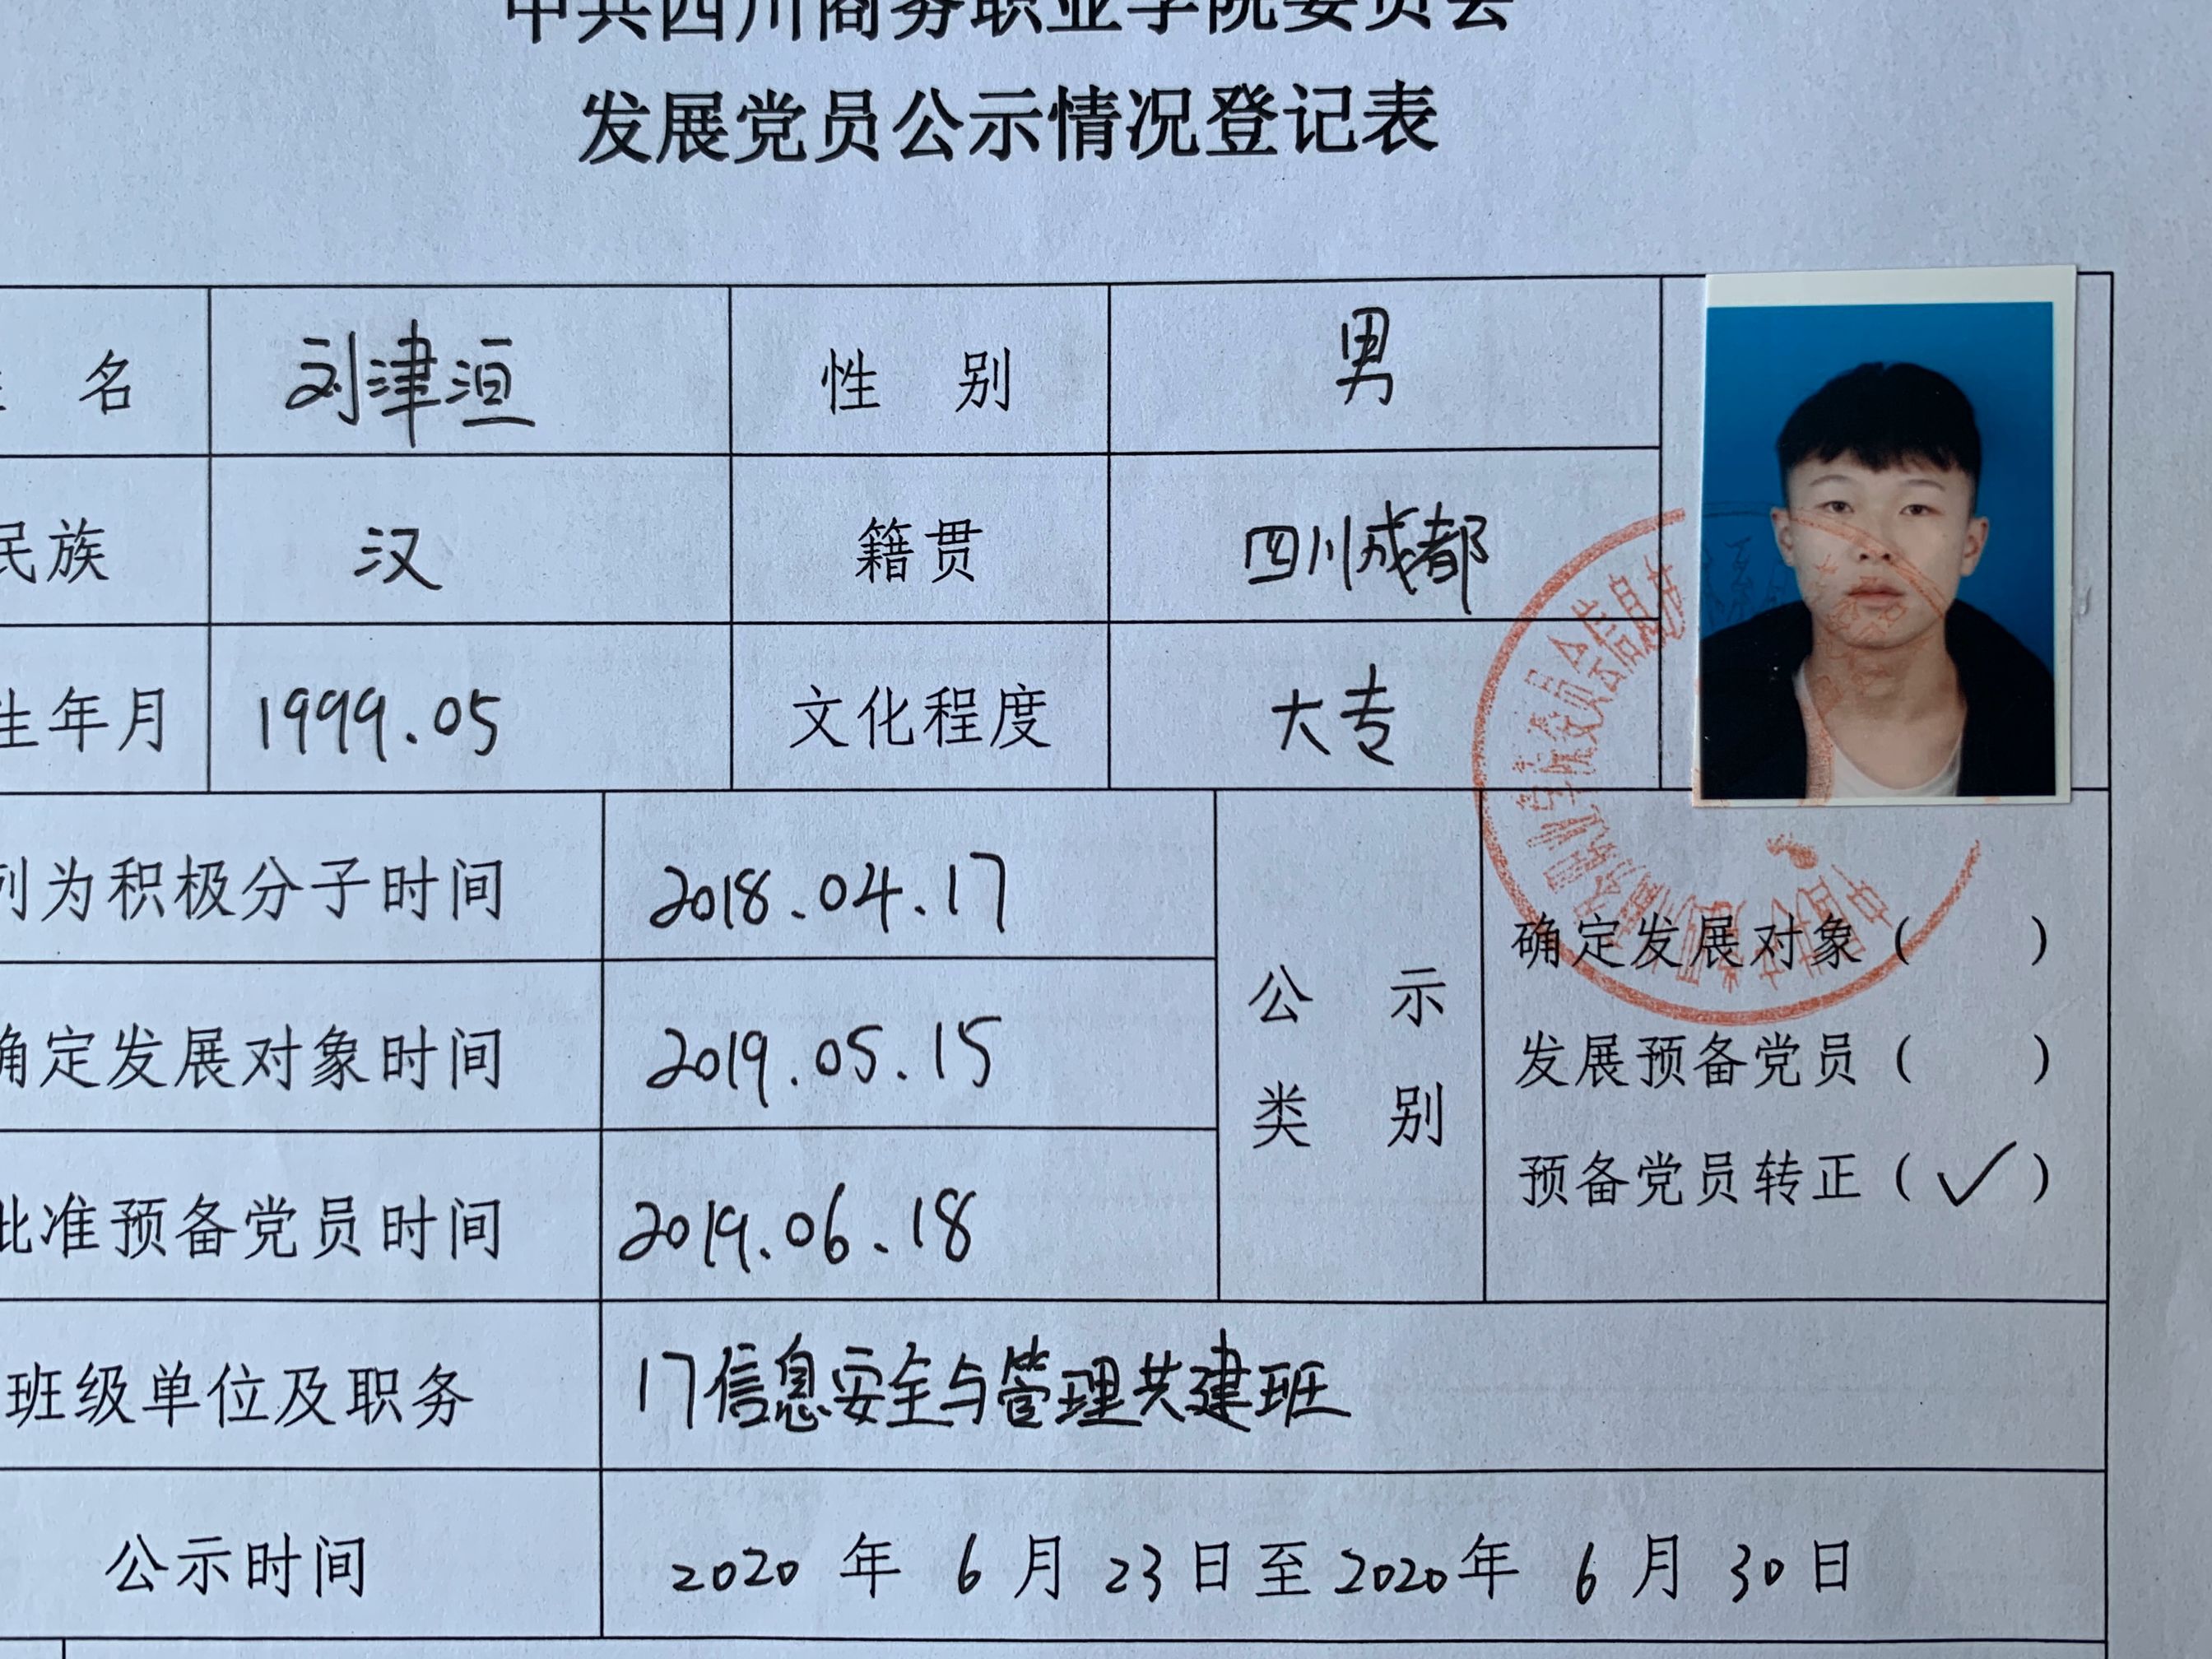 中共四川商务职业学院委员会
发展党员公示情况登记表
名 刘津洹 性 别 男
民族 汉 籍贯 四川成都
生年月 1999.05 文化程度 大专
列为积极分子时间 2018.04.17
确定发展对象时间 2019.05.15
批准预备党员时间 2019.06.18
公 示
类 别
确定发展对象（ ）
发展预备党员（ ）
预备党员转正（✓）
班级单位及职务 17信息安全与管理共建班
公示时间 2020 年 6 月 23 日至 2020 年 6 月 30 日